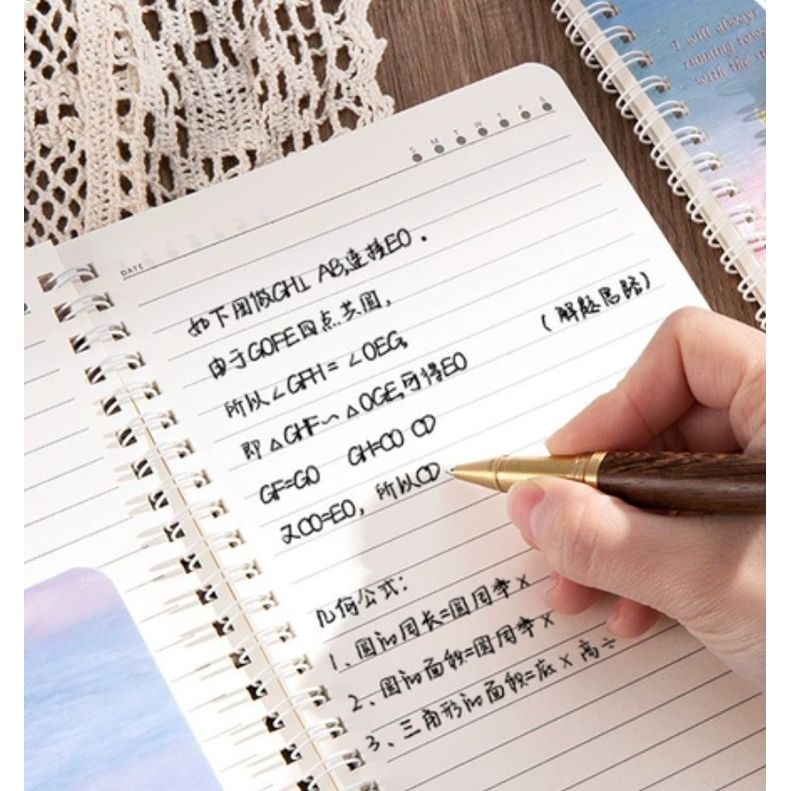 I will always
running towa
with the st
S M T W T F S
DATE
如下图做GH⊥ AB,连接EO.
由于GOFE四点共圆,
(解题思路)
所以∠GFH=∠OEG,
即△GHF∽△OGE,可得EO
GF=GO GH=CO CD
又CO=EO, 所以CD
几何公式:
1、圆的周长=圆周率×
2、圆的面积=圆周率×
3、三角形的面积=底×高÷